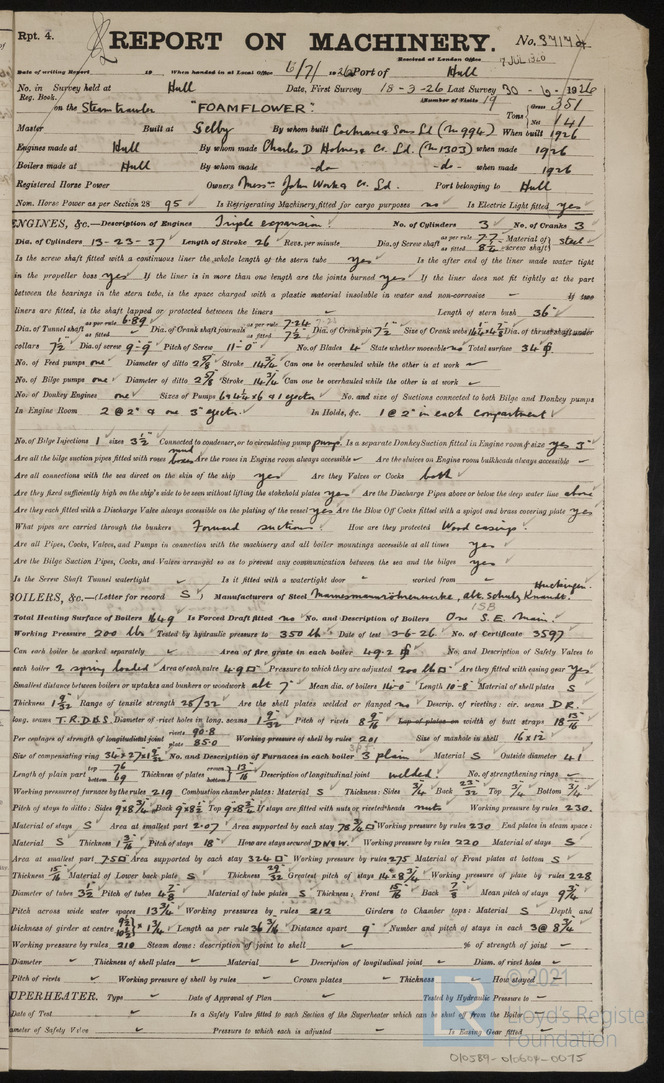 Rpt. 4.
REPORT ON MACHINERY. No. 37174
Received at London Office 7 JUL 1926
Date of writing Report 19 When handed in at Local Office 6/7/1926 Port of Hull
No. in Survey held at Hull Date, First Survey 18-3-26 Last Survey 30-6-1926
Reg. Book. (Number of Visits 19
on the Steam trawler "FOAMFLOWER". Tons Gross 351 Net 141
Master Built at Selby By whom built Cochrane & Sons Ld (No 994) When built 1926
Engines made at Hull By whom made Charles D Holmes & Co. Ld. (No 1303) when made 1926
Boilers made at Hull By whom made -do- -do- when made 1926
Registered Horse Power Owners Messrs John Work & Co. Ld. Port belonging to Hull
Nom. Horse Power as per Section 28 95 Is Refrigerating Machinery fitted for cargo purposes no Is Electric Light fitted yes
ENGINES, &c.—Description of Engines Triple expansion. No. of Cylinders 3 No. of Cranks 3
Dia. of Cylinders 13-23-37 Length of Stroke 26 Revs. per minute Dia. of Screw shaft as per rule 7.7 as fitted Material of screw shaft steel
Is the screw shaft fitted with a continuous liner the whole length of the stern tube yes Is the after end of the liner made water tight
in the propeller boss yes If the liner is in more than one length are the joints burned yes If the liner does not fit tightly at the part
between the bearings in the stern tube, is the space charged with a plastic material insoluble in water and non-corrosive - If two
liners are fitted, is the shaft lapped or protected between the liners - Length of stern bush 36"
Dia. of Tunnel shaft as per rule 6.89 as fitted Dia. of Crank shaft journals as per rule 7.24 as fitted 7½" Dia. of Crank pin 7½" Size of Crank webs Dia. of thrust shaft under
collars 7½" Dia. of screw 9-9 Pitch of Screw 11-0" No. of Blades 4 State whether moveable no Total surface 34
No. of Feed pumps one Diameter of ditto 2⅝" Stroke 14¾" Can one be overhauled while the other is at work -
No. of Bilge pumps one Diameter of ditto 2⅝" Stroke 14¾" Can one be overhauled while the other is at work -
No. of Donkey Engines one Sizes of Pumps No. and size of Suctions connected to both Bilge and Donkey pumps
In Engine Room 2 @ 2" & one 3" ejector In Holds, &c. 1 @ 2" in each compartment
No. of Bilge Injections 1 sizes 3½" Connected to condenser, or to circulating pump pump. Is a separate Donkey Suction fitted in Engine room & size yes 3"
Are all the bilge suction pipes fitted with roses mud boxes Are the roses in Engine room always accessible - Are the sluices on Engine room bulkheads always accessible -
Are all connections with the sea direct on the skin of the ship yes Are they Valves or Cocks both
Are they fixed sufficiently high on the ship's side to be seen without lifting the stokehold plates yes Are the Discharge Pipes above or below the deep water line above
Are they each fitted with a Discharge Valve always accessible on the plating of the vessel yes Are the Blow Off Cocks fitted with a spigot and brass covering plate yes
What pipes are carried through the bunkers Forward suctions How are they protected Wood casings.
Are all Pipes, Cocks, Valves, and Pumps in connection with the machinery and all boiler mountings accessible at all times yes
Are the Bilge Suction Pipes, Cocks, and Valves arranged so as to prevent any communication between the sea and the bilges yes
Is the Screw Shaft Tunnel watertight - Is it fitted with a watertight door - worked from -
BOILERS, &c.—(Letter for record S) Manufacturers of Steel Mannesmannröhrenwerke, abt. Schulz Knaudt. Huckingen.
Total Heating Surface of Boilers 1649 Is Forced Draft fitted no No. and Description of Boilers One S.E. Main. 1SB
Working Pressure 200 lbs Tested by hydraulic pressure to 350 lbs Date of test 3-6-26 No. of Certificate 3597
Can each boiler be worked separately - Area of fire grate in each boiler 49.2 No. and Description of Safety Valves to
each boiler 2 spring loaded Area of each valve 4.9 Pressure to which they are adjusted 200 lb Are they fitted with easing gear yes
Smallest distance between boilers or uptakes and bunkers or woodwork abt 7" Mean dia. of boilers 14-0" Length 10-8" Material of shell plates S
Thickness 1 9/32 Range of tensile strength 28/32 Are the shell plates welded or flanged no Descrip. of riveting: cir. seams D.R.
long. seams T.R.D.B.S. Diameter of rivet holes in long. seams 1 9/32 Pitch of rivets 8 9/16 Lap of plates or width of butt straps 18 13/16
Per centages of strength of longitudinal joint rivets 90.8 plate 85.0 Working pressure of shell by rules 201 Size of manhole in shell 16 x 12
Size of compensating ring No. and Description of Furnaces in each boiler 3 plain Material S Outside diameter 41
Length of plain part top 76 bottom 69 Thickness of plates crown bottom 13/16 Description of longitudinal joint welded. No. of strengthening rings -
Working pressure of furnace by the rules 219 Combustion chamber plates: Material S Thickness: Sides ¾ Back 23/32 Top ¾ Bottom ¾
Pitch of stays to ditto: Sides 9 x 8¾ Back 9 x 8½ Top 9 x 8¾ If stays are fitted with nuts or riveted heads nuts Working pressure by rules 230.
Material of stays S Area at smallest part 2.07 Area supported by each stay 78¾ Working pressure by rules 230 End plates in steam space:
Material S Thickness 1 3/16 Pitch of stays 18" How are stays secured D.N.&W. Working pressure by rules 220 Material of stays S
Area at smallest part 7.5 Area supported by each stay 324 Working pressure by rules 275 Material of Front plates at bottom S
Thickness 15/16 Material of Lower back plate S Thickness 29/32 Greatest pitch of stays 14 x 8¾ Working pressure of plate by rules 228
Diameter of tubes 3½ Pitch of tubes 4⅞ Material of tube plates S Thickness: Front 15/16 Back ⅞ Mean pitch of stays 9¾
Pitch across wide water spaces 13¾ Working pressures by rules 212 Girders to Chamber tops: Material S Depth and
thickness of girder at centre Length as per rule Distance apart 9" Number and pitch of stays in each 3 @ 8¾
Working pressure by rules 210 Steam dome: description of joint to shell - % of strength of joint -
Diameter - Thickness of shell plates - Material - Description of longitudinal joint - Diam. of rivet holes -
Pitch of rivets - Working pressure of shell by rules - Crown plates - Thickness - How stayed -
SUPERHEATER. Type - Date of Approval of Plan - Tested by Hydraulic Pressure to -
Date of Test - Is a Safety Valve fitted to each Section of the Superheater which can be shut off from the Boiler -
Diameter of Safety Valve - Pressure to which each is adjusted - Is Easing Gear fitted -
© 2021
Lloyd's Register
Foundation
010589-010604-0075